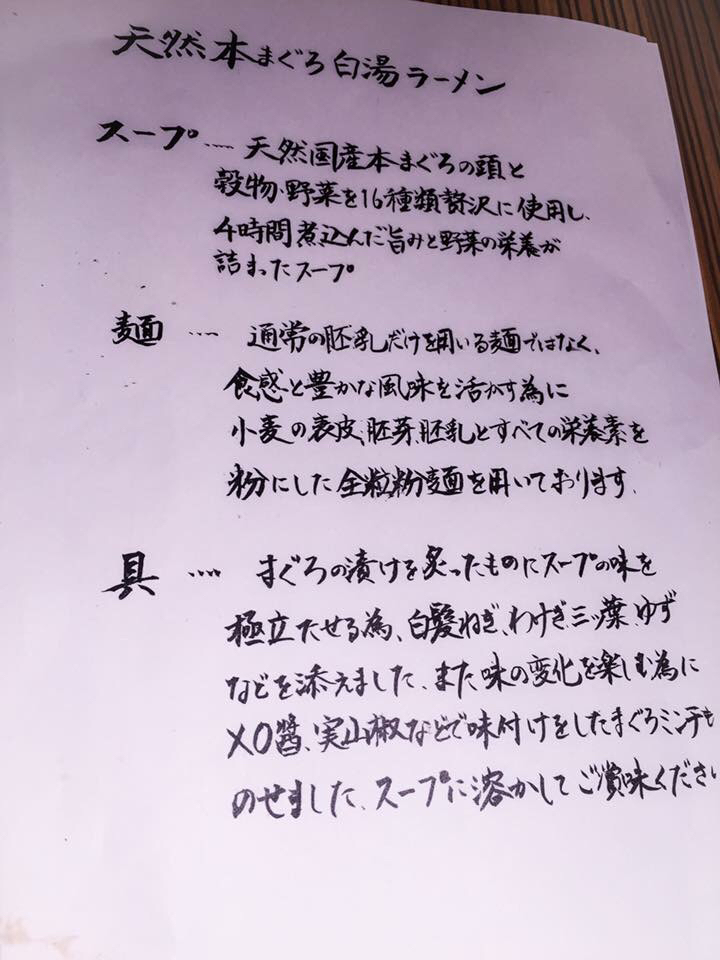 天然本まぐろ白湯ラーメン
スープ‥‥天然国産本まぐろの頭と
穀物・野菜を16種類贅沢に使用し、
4時間煮込んだ旨みと野菜の栄養が
詰まったスープ
麺‥‥通常の胚乳だけを用いる麺ではなく、
食感と豊かな風味を活かす為に
小麦の表皮、胚芽、胚乳とすべての栄養素を
粉にした全粒粉麺を用いております。
具‥‥まぐろの漬けを炙ったものにスープの味を
極立たせる為、白髪ねぎ、わけぎ、三ッ葉、ゆず
などを添えました。また味の変化を楽しむ為に
XO醤、実山椒などで味付けをしたまぐろミンチも
のせました。スープに溶かしてご賞味くださ